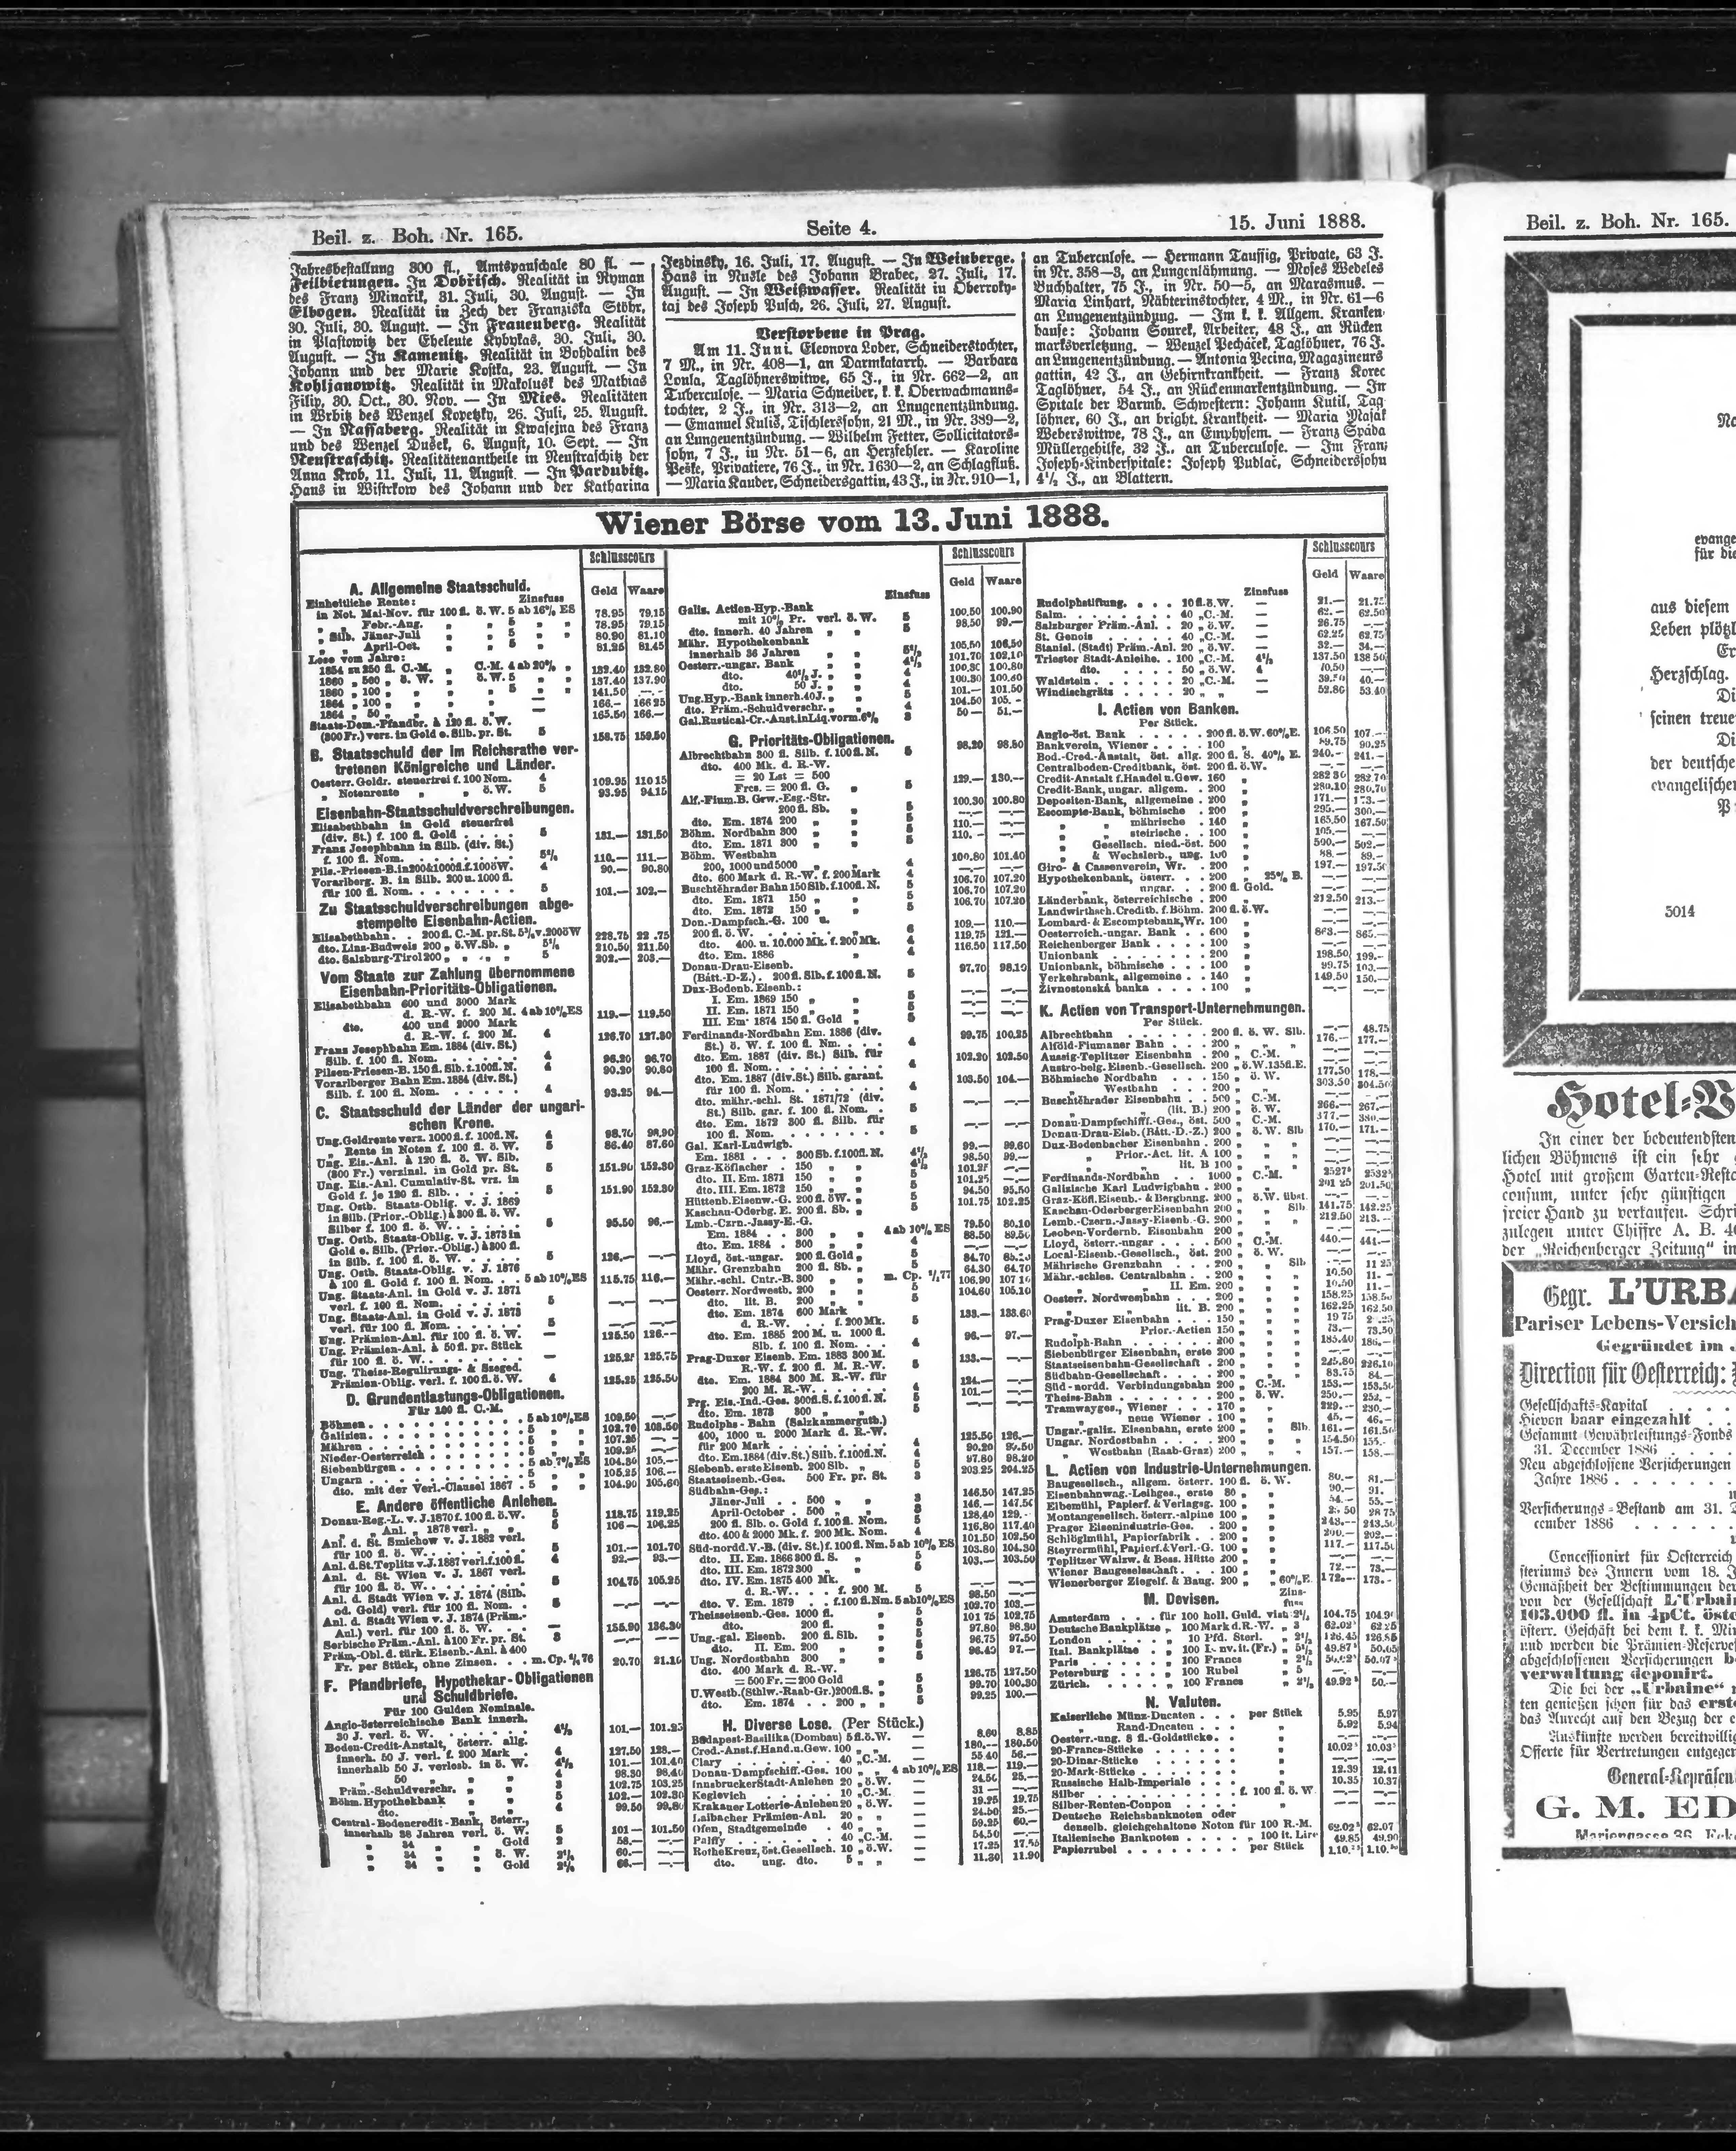 Beil. z. Boh. Nr. 165.
Seite 4.
15. Juni 1888.
Jahresbestallung 300 fl., Amtspauschale 80 fl. —
Feilbietungen. In Dobřisch. Realität in Ryman
des Franz Minařik, 31. Juli, 30. August. — In
Elbogen. Realität in Zech der Franziska Stöhr,
30. Juli, 30. August. — In Frauenberg. Realität
in Plastowitz der Eheleute Kybykas, 30. Juli, 30.
August. — In Kamenitz. Realität in Bohdalin des
Johann und der Marie Kostka, 23. August. — In
Kohljanowitz. Realität in Makolusk des Mathias
Filip, 30. Oct., 30. Nov. — In Mies. Realitäten
in Wrbitz des Wenzel Kopetzky, 26. Juli, 25. August.
— In Nassaberg. Realität in Kwasejna des Franz
und des Wenzel Dušek, 6. August, 10. Sept. — In
Neustraschitz. Realitätenantheile in Neustraschitz der
Anna Krob, 11. Juli, 11. August. — In Pardubitz.
Haus in Wistrkow des Johann und der Katharina
Jezbinsky, 16. Juli, 17. August. — In Weinberge.
Haus in Nusle des Johann Brabec, 27. Juli, 17.
August. — In Weißwasser. Realität in Oberroky-
tai des Joseph Pusch, 26. Juli, 27. August.
Verstorbene in Prag.
Am 11. Juni. Eleonora Loder, Schneiderstochter,
7 M., in Nr. 408—1, an Darmkatarrh. — Barbara
Loula, Taglöhnerswitwe, 65 J., in Nr. 662—2, an
Tuberculose. — Maria Schneiber, k. k. Oberwachmanns-
tochter, 2 J., in Nr. 313—2, an Lungenentzündung.
— Emanuel Kuliš, Tischlerssohn, 21 M., in Nr. 389—2,
an Lungenentzündung. — Wilhelm Fetter, Sollicitators-
sohn, 7 J., in Nr. 51—6, an Herzfehler. — Karoline
Peške, Privatiere, 76 J., in Nr. 1630—2, an Schlagfluß.
— Maria Kauder, Schneidersgattin, 43 J., in Nr. 910—1,
an Tuberculose. — Hermann Taussig, Private, 63 J.
in Nr. 358—3, an Lungenlähmung. — Moses Wedeles
Buchhalter, 75 J., in Nr. 50—5, an Marasmus. —
Maria Linhart, Nähterinstochter, 4 M., in Nr. 61—6
an Lungenentzündung. — Im k. k. Allgem. Kranken
hause: Johann Sourek, Arbeiter, 48 J., an Rücken
marksverletzung. — Wenzel Pecháček, Taglöhner, 76 J.
an Lungenentzündung. — Antonia Pecina, Magazineurs
gattin, 42 J., an Gehirnkrankheit. — Franz Korec
Taglöhner, 54 J., an Rückenmarkentzündung. — In
Spitale der Barmh. Schwestern: Johann Kutil, Tag
löhner, 60 J., an bright. Krankheit. — Maria Mašak
Weberswitwe, 78 J., an Emphysem. — Franz Spáda
Müllergehilfe, 32 J., an Tuberculose. — Im Franz
Joseph-Kinderspitale: Joseph Pudlač, Schneiderssohn
4½ J., an Blattern.
Wiener Börse vom 13. Juni 1888.
Schlusscours
Geld Waare
A. Allgemeine Staatsschuld.
Einheitliche Rente: Zinsfuss
in Not. Mai-Nov. für 100 fl. ö. W. 5 ab 16% ES 78.95 79.15
„ „ Febr.-Aug. „ „ 5 „ „ 78.95 79.15
„ Silb. Jäner-Juli „ „ 5 „ „ 80.90 81.10
„ „ April-Oct. „ „ 5 „ „ 81.25 81.45
Lose vom Jahre:
1854 zu 250 fl. C.-M. „ C.-M. 4 ab 20% „ 132.40 132.80
1860 „ 500 „ ö. W. „ ö. W. 5 „ „ 137.40 137.90
1860 „ 100 „ „ „ „ 5 „ „ 141.50 —.—
1864 „ 100 „ „ „ „ — 166.— 166 25
1864 „ 50 „ „ „ „ — 165.50 166.—
Staats-Dom.-Pfandbr. à 120 fl. ö. W.
(300 Fr.) verz. in Gold o. Silb. pr. St. 5 158.75 159.50
B. Staatsschuld der im Reichsrathe ver-
tretenen Königreiche und Länder.
Oesterr. Goldr. steuerfrei f. 100 Nom. 4 109.95 110 15
„ Notenrente „ „ ö. W. 5 93.95 94.15
Eisenbahn-Staatsschuldverschreibungen.
Elisabethbahn in Gold steuerfrei
(div. St.) f. 100 fl. Gold 5 131.— 131.50
Franz Josephbahn in Silb. (div. St.)
f. 100 fl. Nom. 5¼ 110.— 111.—
Pils.-Priesen-B. in 200 & 1000 fl. f. 100 ö W. 4 90.— 90.80
Vorarlberg. B. in Silb. 200 u. 1000 fl.
für 100 fl. Nom. 5 101.— 102.—
Zu Staatsschuldverschreibungen abge-
stempelte Eisenbahn-Actien.
Elisabethbahn. . 200 fl. C.-M. pr. St. 5¾ v. 200 öW
dto. Linz-Budweis 200 „ ö.W.Sb. „ 5¼ 210.50 211.50
dto. Salzburg-Tirol 200 „ „ 5 202.— 203.—
Vom Staate zur Zahlung übernommene
Eisenbahn-Prioritäts-Obligationen.
Elisabethbahn 600 und 3000 Mark
d. R.-W. f. 200 M. 4 ab 10% ES 119.— 119.50
dto. 400 und 2000 Mark
d. R.-W. f. 200 M. 4 126.70 127.30
Franz Josephbahn Em. 1884 (div. St.)
Silb. f. 100 fl. Nom. 4 96.20 96.70
Pilsen-Priesen-B. 150 fl. Slb. f. 100 fl. N. 4 90.20 90.80
Vorarlberger Bahn Em. 1884 (div. St.)
Silb. f. 100 fl. Nom. 4 93.25 94.—
C. Staatsschuld der Länder der ungari-
schen Krone.
Ung. Goldrente verz. 1000 fl. f. 100 fl. N. 4 98.70 98.90
„ Rente in Noten f. 100 fl. ö. W. 5 86.40 87.60
Ung. Eis.-Anl. à 120 fl. ö. W. Slb.
(300 Fr.) verzinsl. in Gold pr. St. 5 151.90 152.30
Ung. Eis.-Anl. Cumulativ-St. vrz. in
Gold f. je 120 fl. Slb. 5 151.90 152.30
Ung. Ostb. Staats-Oblig. v. J. 1869
in Silb. (Prior.-Oblig.) à 300 fl. ö. W.
Silber f. 100 fl. ö. W. 5 95.50 96.—
Ung. Ostb. Staats-Oblig. v. J. 1873 in
Gold o. Silb. (Prior.-Oblig.) à 300 fl.
in Silb. f. 100 fl. ö. W. 5 126.— —.—
Ung. Ostb. Staats-Oblig. v. J. 1876
à 100 fl. Gold f. 100 fl. Nom. 5 ab 10% ES 115.75 116.—
Ung. Staats-Anl. in Gold v. J. 1871
verl. f. 100 fl. Nom. 5 —.— —.—
Ung. Staats-Anl. in Gold v. J. 1873
verl. für 100 fl. Nom. 5 —.— —.—
Ung. Prämien-Anl. für 100 fl. ö. W. — 125.50 126.—
Ung. Prämien-Anl. à 50 fl. pr. Stück
für 100 fl. ö. W. — 125.75
Ung. Theiss-Regulirungs- & Szeged.
Prämien-Oblig. verl. f. 100 fl. ö. W. 4 125.25 125.50
D. Grundentlastungs-Obligationen.
Für 100 fl. C.-M.
Böhmen 5 ab 10% ES 109.50 —.—
Galizien 5 „ 102.70 103.50
Mähren 5 „ 107.25 —.—
Nieder-Oesterreich 5 „ 109.25 —.—
Siebenbürgen 5 ab 7% ES 104.30 105.—
Ungarn 5 „ 105.25 106.—
dto. mit der Verl.-Clausel 1867 . 5 „ 104.90 105.60
E. Andere öffentliche Anlehen.
Donau-Reg.-L. v. J. 1870 f. 100 fl. ö. W. 5 118.75 119.25
„ „ Anl. „ 1878 verl. „ „ 5 106 — 106.25
Anl. d. St. Smichow v. J. 1882 verl.
für 100 fl. ö. W. 5 101.— 101.70
Anl. d. St. Teplitz v. J. 1887 verl. f. 100 fl. 4 92.— 93.—
Anl. d. St. Wien v. J. 1867 verl.
für 100 fl. ö. W. 5 104.75 105.25
Anl. d. Stadt Wien v. J. 1874 (Silb.
od. Gold) verl. für 100 fl. Nom. 5 —.— —.—
Anl. d. Stadt Wien v. J. 1874 (Präm.-
Anl.) verl. für 100 fl. ö. W. — 135.90 136.30
Serbische Präm.-Anl. à 100 Fr. pr. St. 3 —.— —.—
Präm.-Obl. d. türk. Eisenb.-Anl. à 400
Fr. per Stück, ohne Zinsen. m. Cp. 20.70 21.10
F. Pfandbriefe, Hypothekar-Obligationen
und Schuldbriefe.
Für 100 Gulden Nominale.
Anglo-österreichische Bank innerh.
30 J. verl. ö. W. 4½ 101.— 101.25
Boden-Credit-Anstalt, österr. allg.
innerh. 50 J. verl. f. 200 Mark 4 127.50 128.—
innerhalb 50 J. verlosb. in ö. W. 4½ 101.— 101.40
„ 50 „ „ 4 98.30 98.40
Präm.-Schuldverschr. „ 3 102.75 103.25
Böhm. Hypothekbank „ „ 5 102.— 102.30
dto. „ „ 4 99.50 99.80
Central-Bodencredit-Bank, österr.,
innerhalb 38 Jahren verl. ö. W. 5 101 — 101.50
„ 34 „ Gold 58.— —.—
„ 34 „ ö. W. 60.— —.—
„ 34 „ Gold 66.— —.—
Zinsfuss
Schlusscours
Geld Waare
Galiz. Actien-Hyp.-Bank
mit 10% Pr. verl. ö. W. 5 100.50 100.90
dto. innerh. 40 Jahren „ „ 5 98.50 99.—
Mähr. Hypothekenbank
innerhalb 36 Jahren „ „ 5½ 105.50 106.50
Oesterr.-ungar. Bank „ 4½ 101.70 102.10
dto. 40½ J. „ „ 4 100.30 100.80
dto. 50 J. „ „ 4 100.30 100.60
Ung. Hyp.-Bank innerh. 40 J. „ 5 101.— 101.50
dto. Präm.-Schuldverschr. „ 4 104.50 105.—
Gal. Rustical-Cr.-Anst. in Liq. vorm. 6% 3 50 — 51.—
G. Prioritäts-Obligationen.
Albrechtbahn 300 fl. Silb. f. 100 fl. N. 5 98.20 98.80
dto. 400 Mk. d. R.-W.
= 20 Lst = 500
Frcs. = 200 fl. G. „ 5 129.— 130.—
Alf.-Fium. B. Grw.-Esg.-Str.
200 fl. Sb. „ 5 100.30 100.80
dto. Em. 1874 200 „ „ 5 —.— —.—
Böhm. Nordbahn 300 „ „ 5 110.— —.—
dto. Em. 1871 300 „ „ 5 110.— —.—
Böhm. Westbahn
200, 1000 und 5000 „ „ 4 100.80 101.40
dto. 600 Mark d. R.-W. f. 200 Mark 4 106.70 107.20
Buschtěhrader Bahn 150 Slb. f. 100 fl. N. 5 106.70 107.20
dto. Em. 1871 150 „ „ 5 106.70 107.20
dto. Em. 1872 150 „ „ 5
Don.-Dampfsch.-G. 100 u.
200 fl. ö. W. „ 6 109.— 110.—
dto. 400. u. 10.000 Mk. f. 200 Mk. 4 119.75 121.—
dto. Em. 1886 „ 4 116.50 117.50
Donau-Drau-Eisenb.
(Bátt.-D-Z.) . 200 fl. Slb. f. 100 fl. N. 5 97.70 98.10
Dux-Bodenb. Eisenb.:
I. Em. 1869 150 „ „ 5 —.— —.—
II. Em. 1871 150 „ „ 5 —.— —.—
III. Em. 1874 150 fl. Gold „ 5 —.— —.—
Ferdinands-Nordbahn Em. 1886 (div.
St.) ö. W. f. 100 fl. Nm. 4 99.75 100.25
dto. Em. 1887 (div. St.) Silb. für
100 fl. Nom. 4 102.20 102.50
dto. Em. 1887 (div. St.) Silb. garant.
für 100 fl. Nom. 4 103.50 104.—
dto. mähr.-schl. St. 1871/72 (div.
St.) Silb. gar. f. 100 fl. Nom. 5 —.— —.—
dto. Em. 1872 300 fl. Silb. für
100 fl. Nom. 5 —.— —.—
Gal. Karl-Ludwigb.
Em. 1881 . . . 300 Sb. f. 100 fl. N. 4½ 99.— 99.60
Graz-Köflacher . 150 „ „ 4½ 98.50 99.—
dto. II. Em. 1871 150 „ „ 5
dto. III. Em. 1872 150 „ „ 5 101.25 —.—
Hüttenb. Eisenw.-G. 200 fl. öW. „ 5 94.50 95.50
Kaschau-Oderbg. E. 200 fl. Sb. „ 5 101.75 102.25
Lmb.-Czrn.-Jassy-E.-G.
Em. 1884 . . 300 „ „ 4 ab 10% ES 79.50 80.10
dto. Em. 1884 . 300 „ „ 4 88.50 89.50
Lloyd, öst.-ungar. 200 fl. Gold „ 5 —.— —.—
Mähr. Grenzbahn 200 fl. Sb. „ 5
Mähr.-schl. Cntr.-B. 300 „ m. Cp. 64.30 64.70
Oesterr. Nordwestb. 200 „ „ 5 106.90 107 10
dto. lit. B. 200 „ „ 5 104.60 105.10
dto. Em. 1874 600 Mark
d. R.-W. . . f. 200 Mk. 5 133.— 133.60
dto. Em. 1885 200 M. u. 1000 fl.
Slb. f. 100 fl. Nom. 4 96.— 97.—
Prag-Duxer Eisenb. Em. 1883 300 M.
R.-W. f. 200 fl. M. R.-W. 5 133.— —.—
dto. Em. 1884 300 M. R.-W. für
200 M. R.-W. 4 124.— —.—
Prg. Eis.-Ind.-Ges. 300 fl. S. f. 100 fl. N. 5 101.— —.—
dto. Em. 1873 300 „ „ 5 —.— —.—
Rudolphs-Bahn (Salzkammerguth.)
400, 1000 u. 2000 Mark d. R.-W.
für 200 Mark 4 125.50 126.—
dto. Em. 1884 (div. St.) Silb. f. 100 fl. N. 4 90.20 90.50
Siebenb. erste Eisenb. 200 Slb. „ 5 97.80 98.20
Staatseisenb.-Ges. 500 Fr. pr. St. 3 203.25 204.25
Südbahn-Ges.:
Jäner-Juli . . 500 „ „ 3 146.50 147.25
April-October . 500 „ „ 3 146.— 147.50
200 fl. Slb. o. Gold f. 100 fl. Nom. 5 128.40 129.—
dto. 400 & 2000 Mk. f. 200 Mk. Nom. 4 116.80 117.40
Süd-nordd. V.-B. (div. St.) f. 100 fl. Nm. 5 ab 10% ES 101.50 102.50
dto. II. Em. 1866 300 fl. S. „ 5 103.80 104.30
dto. III. Em. 1872 300 „ „ 5 103.— 103.50
dto. IV. Em. 1875 400 Mk.
d. R.-W. . . f. 200 M. 5 —.— —.—
dto. V. Em. 1879 . . f. 100 fl. Nm. 5 ab 10% ES 98.50
Theisseisenb.-Ges. 1000 fl. 5 102.70 103.—
dto. 200 fl. „ 5 101 75 102.75
Ung.-gal. Eisenb. 200 fl. Slb. „ 5 97.80 98.30
dto. II. Em. 200 „ „ 5 96.75 97.50
Ung. Nordostbahn 300 „ „ 5 96.40 97.—
dto. 400 Mark d. R.-W.
= 500 Fr. = 200 Gold „ 5 126.75 127.50
U. Westb. (Sthlw.-Raab-Gr.) 200 fl. S. „ 5 99.70 100.30
dto. Em. 1874 . . 200 „ „ 5 99.25 100.—
H. Diverse Lose. (Per Stück.)
Budapest-Basilika (Dombau) 5 fl. ö. W. — 8.60 8.85
Cred.-Anst. f. Hand. u. Gew. 100 „ „ — 180.— 180.50
Clary . . . . 40 „C.-M. — 55 40 56.—
Donau-Dampfschiff.-Ges. 100 „ „ 4 ab 10% ES 118.— 119.—
Innsbrucker Stadt-Anlehen 20 „ ö. W. — 24.50 25.—
Keglevich . . . . 10 „C.-M. — 31 — —.—
Krakauer Lotterie-Anlehen 20 „ ö. W. — 19.25 19.75
Laibacher Prämien-Anl. 20 „ „ — 24.50 25.—
Ofen, Stadtgemeinde . 40 „ „ — 59.25 60.—
Palffy . . . . 40 „C.-M. — 54.50 —.—
Rothe Kreuz, öst. Gesellsch. 10 „ ö.W. — 17.25 17.55
dto. ung. dto. 5 „ „ — 11.30 11.90
Zinsfuss
Schlusscours
Geld Waare
Rudolphstiftung. . . . 10 fl. ö. W. — 21.— 21.75
Salm. . . . . 40 „C.-M. — 62.— 62.50
Salzburger Präm.-Anl. . 20 „ ö.W. — 26.75 —.—
St. Genois . . . . 40 „C.-M. — 62.25 62.75
Stanisl. (Stadt) Präm.-Anl. 20 „ ö.W. — 32.— 34.—
Triester Stadt-Anleihe. . 100 „C.-M. 4½ 137.50 138 50
dto. 50 „ ö.W. 4 70.50 —.—
Waldstein . . . . 20 „C.-M. — 39.50 40.—
Windischgrätz . . . . 20 „ „ — 52.80 53.40
I. Actien von Banken.
Per Stück.
Anglo-öst. Bank . . . 200 fl. ö. W. 60% E. 106.50 107.—
Bankverein, Wiener . . . 100 „ 89.75 90.25
Bod.-Cred.-Anstalt, öst. allg. 200 fl. S. 40% E. 240.— 241.—
Centralboden-Creditbank, öst. 200 fl. ö. W.
Credit-Anstalt f. Handel u. Gew. 160 „ 282 30 282 70
Credit-Bank, ungar. allgem. . 200 „ 280.10 280.70
Depositen-Bank, allgemeine . 200 „ 171.— 173.—
Escompte-Bank, böhmische . 200 „ 295.— 300.—
„ „ mährische . 140 „ 165.50 167.50
„ „ steirische . . 100 „ 105.— —.—
„ Gesellsch. nied.-öst. 500 „ 500.— 502.—
„ & Wechslerb., ung. 100 „ 88.— 89.—
Giro- & Cassenverein, Wr. . 200 „ 197.— 197.50
Hypothekenbank, österr. . . 200 „ 25% B. —.— —.—
„ ungar. . . 200 fl. Gold. —.— —.—
Länderbank, österreichische . 200 „ 212.50 213.—
Landwirthsch. Creditb. f. Böhm. 200 fl. ö. W. —.— —.—
Lombard- & Escomptebank, Wr. 100 „ —.— —.—
Oesterreich.-ungar. Bank . . 600 „ 863.— 865.—
Reichenberger Bank . . . 100 „ —.— —.—
Unionbank . . . . 200 „ 198.50 199.—
Unionbank, böhmische . . . 100 „ 99.75 103.—
Verkehrsbank, allgemeine . . 140 „ 149.50 150.—
Živnostenská banka . . . 100 „ —.— —.—
K. Actien von Transport-Unternehmungen.
Per Stück.
Albrechtbahn . . . . 200 fl. ö. W. Slb. —.— 48.75
Alföld-Fiumaner Bahn . . 200 „ „ „ 176.— 177.—
Aussig-Teplitzer Eisenbahn . 200 „ C.-M. —.— —.—
Austro-belg. Eisenb.-Gesellsch. 200 „ ö.W. 135 fl. E. —.— —.—
Böhmische Nordbahn . . . 150 „ ö. W. 177.50 178.—
„ Westbahn . . . 200 „ „ 303.50 304.50
Buschtěhrader Eisenbahn . . 500 „ C.-M.
„ (lit. B.) 200 „ ö. W. 266.— 267.—
Donau-Dampfschifff.-Ges., öst. 500 „ C.-M. 377.— 380.—
Donau-Drau-Eisb. (Bátt.-D.-Z.) 200 „ ö. W. Slb 170.— 171.—
Dux-Bodenbacher Eisenbahn . 200 „ „ „ —.— —.—
„ Prior.-Act. lit. A 100 „ „ „ —.— —.—
„ „ lit. B 100 „ „ „ —.— —.—
Ferdinands-Nordbahn . . 1000 „ C.-M.
Galizische Karl Ludwigbahn . 200 „ „ 201 25 201.50
Graz-Köfl. Eisenb.- & Bergbaug. 200 „ ö.W. übst. —.— —.—
Kaschau-Oderberger Eisenbahn 200 „ „ Slb. 141.75 142.25
Lemb.-Czern.-Jassy-Eisenb.-G. 200 „ „ „ 212.50 213.—
Leoben-Vordernb. Eisenbahn 200 „ „ —.— —.—
Lloyd, österr.-ungar . . . 500 „ C.-M. 440.— 441.—
Local-Eisenb.-Gesellsch., öst. 200 „ ö. W.
Mährische Grenzbahn . . . 200 „ „ Slb 11 25
Mähr.-schles. Centralbahn . . 200 „ „ „ 10.50 11.—
„ II. Em. 200 „ „ „ 10.50 11.—
Oesterr. Nordwestbahn . . . 200 „ „ „ 158.25 158.50
„ „ lit. B. 200 „ „ „ 162.25 162.50
Prag-Duxer Eisenbahn . . . 150 „ „ „
„ Prior.-Actien 150 „ „ „ 73.— 73.50
Rudolph-Bahn . . . . 200 „ „ „ 185.40 186.—
Siebenbürger Eisenbahn, erste 200 „ „ „ —.— —.—
Staatseisenbahn-Gesellschaft . 200 „ „ „ 225.80 226.10
Südbahn-Gesellschaft . . . 200 „ „ „ 83.75 84.—
Süd-nordd. Verbindungsbahn 200 „ C.-M. 153.— 153.50
Theiss-Bahn . . . . 200 „ ö. W. 250.— 252.—
Tramwayges., Wiener . . . 170 „ „ 229.— 230.—
„ neue Wiener . 100 „ „ 45.— 46.—
Ungar.-galiz. Eisenbahn, erste 200 „ „ Slb. 161.— 161.50
Ungar. Nordostbahn . . . 200 „ „ „ 154.50 155.—
„ Westbahn (Raab-Graz) 200 „ „ „ 157.— 158.—
L. Actien von Industrie-Unternehmungen.
Baugesellsch., allgem. österr. 100 fl. ö. W. 80.— 81.—
Eisenbahnwag.-Leihges., erste 80 „ „ 90.— 91.—
Elbemühl, Papierf. & Verlagsg. 100 „ „ 54.— 55.—
Montangesellsch. österr.-alpine 100 „ „ 28 75
Prager Eisenindustrie-Ges. . 200 „ „ 243.— 243.50
Schlöglmühl, Papierfabrik . . 200 „ „ 200.— 202.—
Steyrermühl, Papierf. & Verl.-G. 100 „ „ 117.— 117.50
Teplitzer Walzw. & Bess. Hütte 200 „ „ —.— —.—
Wiener Baugesellschaft . . . 100 „ „ 72.— 73.—
Wienerberger Ziegelf. & Baug. 200 „ „ 60% E. 172.— 173.—
M. Devisen.
Zins-
fuss
Amsterdam . . . für 100 holl. Guld. vista 2½ 104.75 104.90
Deutsche Bankplätze „ 100 Mark d. R.-W. „ 3 62.25
London . . . „ 10 Pfd. Sterl. „ 2½ 126.45 126.85
Ital. Bankplätze . . „ 100 L. nv. it. (Fr.) „ 5½ 50.05
Paris . . . . „ 100 Francs „ 2½
Petersburg . . . „ 100 Rubel „ 5 —.— —.—
Zürich. . . . „ 100 Francs „ 2½ 50.—
N. Valuten.
Kaiserliche Münz-Ducaten . . . per Stück 5.95 5.97
„ Rand-Ducaten . . . „ 5.92 5.94
Oesterr.-ung. 8 fl.-Goldstücke. . „ —.— —.—
20-Francs-Stücke . . . . „
20-Dinar-Stücke . . . . „ —.— —.—
20-Mark-Stücke . . . . „ 12.39 12.41
Russische Halb-Imperiale . . . „ 10.35 10.37
Silber . . . . . f. 100 fl. ö. W —.— —.—
Silber-Renten-Coupon . . . „ —.— —.—
Deutsche Reichsbanknoten oder
denselb. gleichgehaltene Noten für 100 R.-M. 62.07
Italienische Banknoten . . „ 100 it. Lire 49.85 49.90
Papierrubel . . . . . per Stück
Beil. z. Boh. Nr. 165.
evange
für die
aus diesem
Leben plötzl
Herzschlag.
seinen treue
der deutsche
evangelischer
5014
Hotel-V
In einer der bedeutendsten
lichen Böhmens ist ein sehr
Hotel mit großem Garten-Resta
consum, unter sehr günstigen
freier Hand zu verkaufen. Schri
zulegen unter Chiffre A. B. 40
der „Reichenberger Zeitung“ in
Gegr. L'URBA
Pariser Lebens-Versich
Gegründet im
Direction für Oesterreich:
Gesellschafts-Kapital
Hievon baar eingezahlt
Gesammt-Gewährleistungs-Fonds
31. December 1886
Neu abgeschlossene Versicherungen
Jahre 1886
Versicherungs-Bestand am 31. D
cember 1886
Concessionirt für Oesterreich
steriums des Innern vom 18. J
Gemäßheit der Bestimmungen der
von der Gesellschaft L'Urbain
103.000 fl. in 4pCt. öste
österr. Geschäft bei dem k. k. Min
und werden die Prämien-Reserve
abgeschlossenen Versicherungen b
verwaltung deponirt.
Die bei der „Urbaine“
ten genießen schon für das erste
das Anrecht auf den Bezug der e
Auskünfte werden bereitwillig
Offerte für Vertretungen entgegen
General-Repräsen
G. M. ED
Mariengasse 36